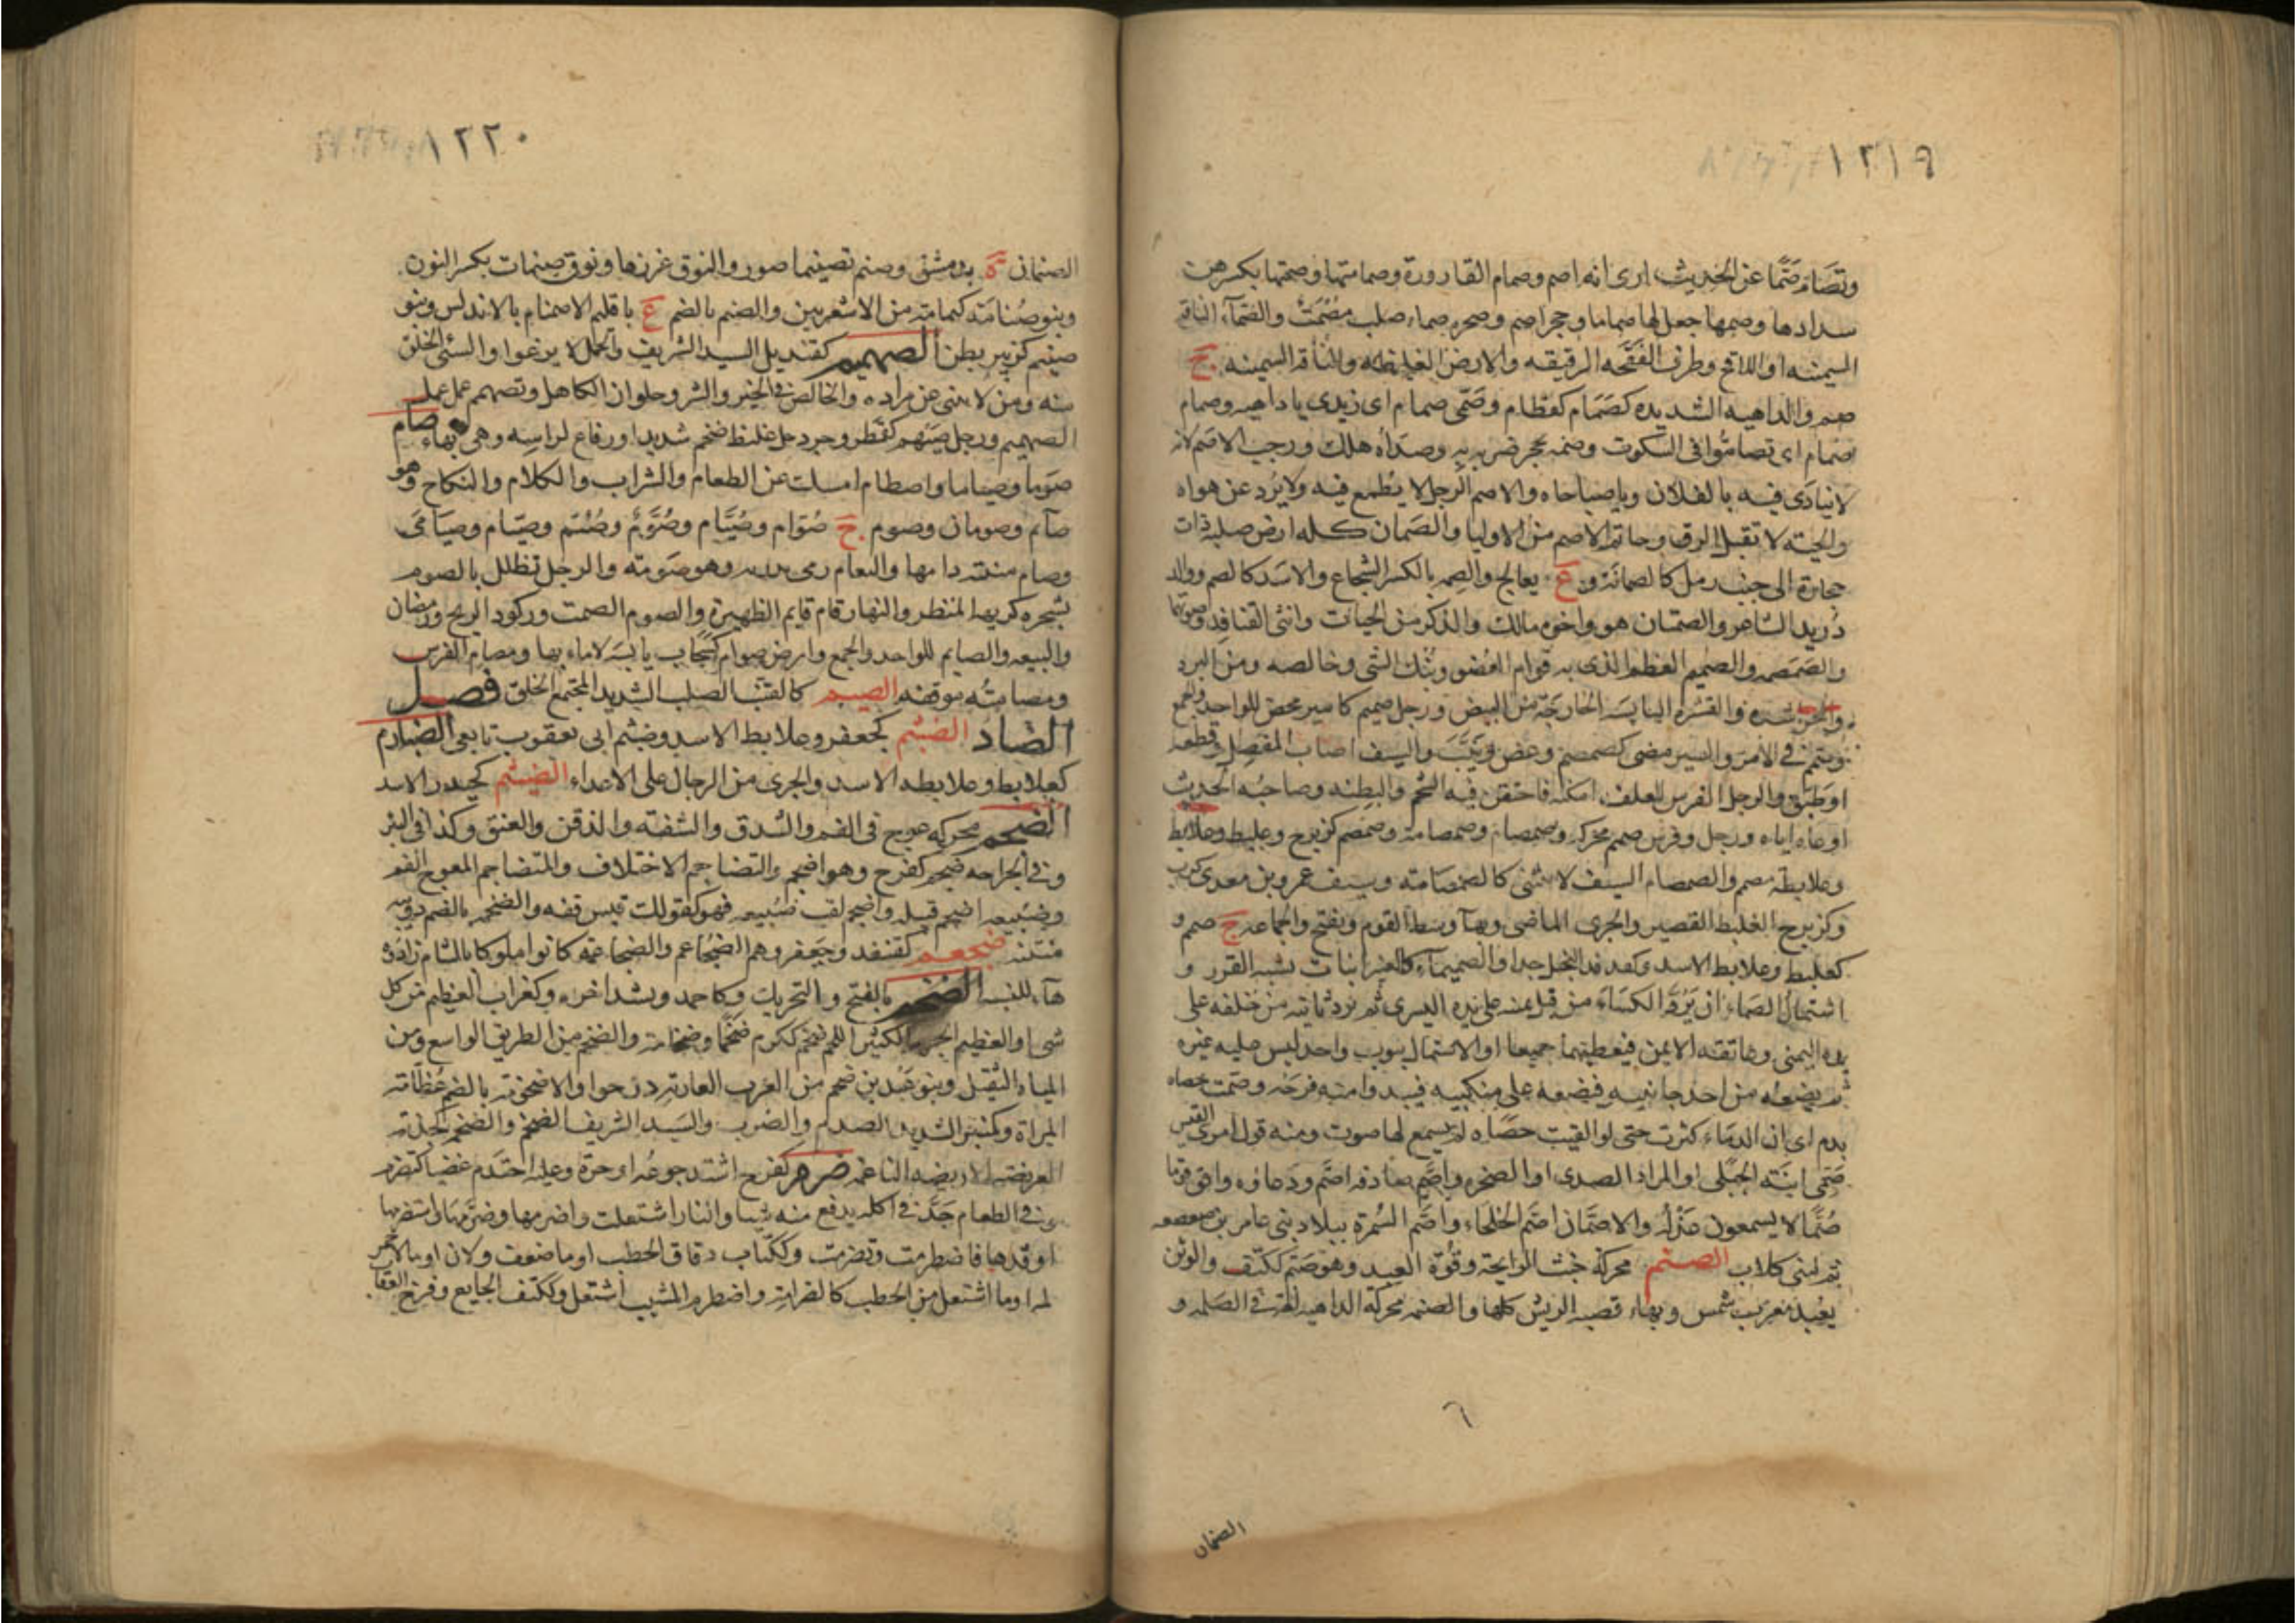 ١٢١٩
وتصَامَّ صَمَّا عن الحديث ارى انه اصم وصمام القارورة وصمامتها وصمتها بكسرهن
سدادها وصمها جعل لها صماما وحجر اصم وصخره صماء صلب مصمت والصمآء الناقه
السمينه او اللاقح وطرف الفقحه الرقيقه والارض الغليظه والناقه السمينه ج
صم والداهيه الشديده كصَمَام كقطام وصَمّى صمام اى زيدى يا داهيه وصمام
صمام اى تصامّوا فى السكوت وصمه بحجر ضربه به وصداه هلك ورجب الاصم لانه
لا ينادى فيه يا لفلان ويا صباحاه والاصم الرجل لا يُطمع فيه ولا يُرد عن هواه
والحيّه لا تقبل الرقى وحاتم الاصم من الاوليا والصَمان كله ارض صلبة ذات
حجارة الى جنب رمل كالصمانة و ع بعالج والصِمه بالكسر الشجاع والاسد كالصم ووالد
دُريد الشاعر والصمتان هو واخوه مالك والذكر من الحيات وانثى القنافد وصوتها
والصَمصمه والصَميم العظم الذى به قوام العُضو وبُنك الشى وخالصه ومن البرد
والحر شده والقشره اليابسَه الخارجَة من البيض ورجل صميم كامير محض للواحد والجمع
وصمم فى الامر والسير مضى كصمصم وعض ونَيّبَ والسيف اصاب المفصل وقطعه
او طبق والرجل الفرس العلف امكنه فاحتقن فيه الشحم والبطنه وصاحبُه الحديث
اوعاه اياه ورجل وفرس صمم محركه وصمصام وصمصامة وصمصم كزبرج وعلبط وعلابط
وعلابطه مصمم والصمصام السيف لا ينثنى كالصمصامه وسيف عمرو بن معدى كرب
وكزبرج الغليظ القصير والجرى الماضى وبهاء وسط القوم ويفتح والجماعه ج صمم و
كعلبط وعلابط الاسد وكفدفد البخيل جدا والصميمآء كالغبرا نبات يشبه الغرز و
اشتمال الصماء ان يَرُدَّ الكسَاء من قبل يمينه على يده اليسرى ثم يرد ثانيه من خلفه على
يده اليمنى وعاتقه الايمن فيغطيهما جميعا او الاشتمال بثوب واحد ليس عليه غيره
ثم يضعه من احد جانبيه فيضعه على منكبيه فيبدوا منه فرجه وصمت حصاه
بدم اى ان الدماء كثرت حتى لو القيت حصَاه لم يسمع لها صوت ومنه قول امرى القيس
صَمّى ابنَة الجبَلى او المراد الصدى او الصخره واصَّم صادف اصَّم ودعاؤه وافق قوما
صُمّا لا يسمعون عَذْلَه والاصمَّان اصَم الجلحاء واصَّم السُمرة ببلاد بنى عامر بن صعصعه
ثم لبنى كلاب الصنم محركة خبث الرايحة وقُوّة العبد وهو صَنِم ككَتِف والوثن
يعبد معرب شمس وبهاء قصبه الريش كلها والصنمه محركة الداهيه لغة فى الصَلمه و
٦
الصنمان
١٢٢٠
الصنمان ة بدمشق وصنم تصنيما صور والنوق غزرها ونوق صنمات بكسر النون
وبنو صُنامَة كثمامة من الاشعريين والصنم بالضم ع باقليم الاصنام بالاندلس وبنو
صنيم كزبير بطن الصهميم كقنديل السيد الشريف والجمل لا يرغوا والسيى الخلق
منه ومن لا ينثنى عن مراده والخالص فى الخير والشر وحلوان الكاهل وتصهم عمل عمل
الصهميم ورجل صيهم كقمطر وجردحل غليظ ضخم شديد او رفاع لراسه وهى بهاء صام
صَوما وصياما واصطام امسك عن الطعام والشراب والكلام والنكاح وهو
صآئم وصومان وصوم ج صُوّام وصُيَّام وصُوَّم وصُيَّم وصيَام وصيَامى
وصام منيته ذاقها والنعام رمى بذرقه وهو صَومه والرجل تظلل بالصوم
لشجره كريهه المنظر والنهار قام قايم الظهيرة والصوم الصمت وركود الريح ورمضان
والبيعه والصايم للواحد والجمع وارض صوام كسَحاب يابسَه لا ماء بها ومصام الفرس
ومصامتُه موقفه الصيم كالقنَب الصلب الشديد المجتمع الخلق فصل
الضاد الضبثم كجعفر وعلابط الاسد وضبثم ابى يعقوب تابعى الضبارم
كعلابط وعلابطه الاسد والجرى من الرجال على الاعداء الضيثم كحيدر الاسد
الضجم محركه عوج فى الفم والشدق والشفه والذقن والعنق وكذا فى البئر
وفى الجراحه ضجم كفرح وهو اضجم والتضاجم الاختلاف والمتضاجم المعوج الفم
وضبيعه اضجم قبيله واضجم لقب ضُبيعه فهو كقولك قيس قفه والضجمه بالضم دويبه
منتنه ضجعم كقنفد وجعفر وهم الضجَاعم والضجاعمه كانوا ملوكا بالشام زادوه
هآء للنسبه الضخم بالفتح والتحريك وكاحمد ويشد اخره وكغراب العظيم من كل
شى او العظيم الجرم الكثير اللحم ضخم ككرم ضَخْمًا وضخامه والضخم من الطريق الواسع ومن
المياه الثقيل وبنو عَبد بن ضخم من العرب العاربه درجوا والاضخومه بالضم عُظّامَة
المراة وكمنبر الشديد الصدم والضرب والسَيد الشريف الضخم والضخمه الجذيه
العريضه الاريضه الناعمه ضرم كفرح اشتد جوعُه او حرّه وعليه احتدَم غضبا كتضرم
وفى الطعام جَدَّ فى اكله يدفع منه شيا والنار اشتعلت واضرمها وضرّمها واستضرمها
اوقدها فاضطرمت وتضرمت وككتاب دقاق الحطب او ما ضعف ولان او ما لا جمر
له او ما اشتعل من الحطب كالضرامة واضطرم المشيب اشتعل وككتف الجايع وفرخ العقاب